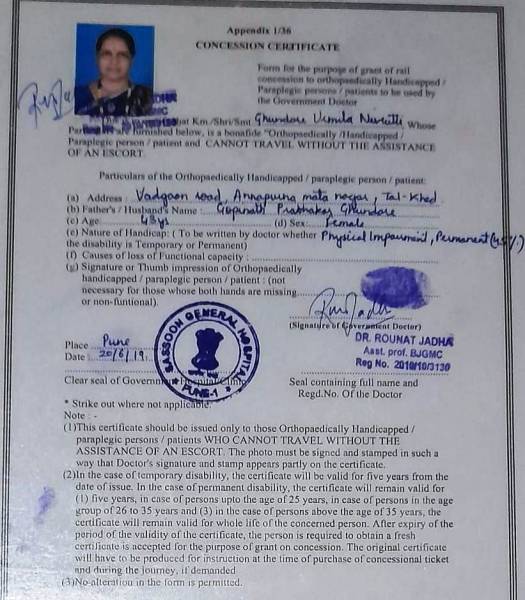 Appendix 1/36
CONCESSION CERTIFICATE
Form for the purpose of grant of rail
concession to orthopaedically Handicapped /
Paraplegic persons / patients to be used by
the Government Doctor
Km/Shri/Smt Ghundare Urmila Whose
are furnished below, is a bonafide "Orthopaedically /Handicapped /
Paraplegic person / patient and CANNOT TRAVEL WITHOUT THE ASSISTANCE
OF AN ESCORT.
Particulars of the Orthopaedically Handicapped / paraplegic person / patient:
(a) Address : Vadgaon road, Annapurna mata nagar, Tal-Khed
(b) Father's / Husband's Name : Gopinath Prabhakar Ghundare
(c) Age 43 yrs (d) Sex Female
(e) Nature of Handicap: ( To be written by doctor whether Physical Impairment, Permanent (45%)
the disability is Temporary or Permanent)
(f) Causes of loss of Functional capacity :
(g) Signature or Thumb impression of Orthopaedically
handicapped / paraplegic person / patient : (not
necessary for those whose both hands are missing
or non-funtional).
(Signature of Government Doctor)
DR. ROUNAT JADHA
Asst. prof. BJGMC
Reg No. 2018/10/3130
SASSOON GENERAL HOSPITAL
PUNE-1
Place Pune
Date : 20/6/19.
Clear seal of Government Hospital/Clinic
Seal containing full name and
Regd.No. Of the Doctor
* Strike out where not applicable.
Note : -
(1)This certificate should be issued only to those Orthopaedically Handicapped /
paraplegic persons / patients WHO CANNOT TRAVEL WITHOUT THE
ASSISTANCE OF AN ESCORT. The photo must be signed and stamped in such
a way that Doctor's signature and stamp appears partly on the certificate.
(2)In the case of temporary disability, the certificate will be valid for five years from the
date of issue. In the case of permanent disability, the certificate will remain valid for
(1) five years, in case of persons upto the age of 25 years, in case of persons in the age
group of 26 to 35 years and (3) in the case of persons above the age of 35 years, the
certificate will remain valid for whole life of the concerned person. After expiry of the
period of the validity of the certificate, the person is required to obtain a fresh
certificate is accepted for the purpose of grant on concession. The original certificate
will have to be produced for instruction at the time of purchase of concessional ticket
and during the journey, if demanded
(3)No alteration in the form is permitted.